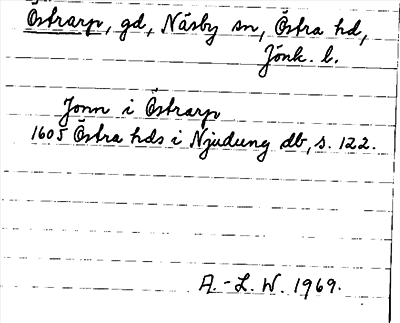 Östrarp, gd, Näsby sn, Östra hd,
Jönk. l.
Jonn i Östrarp
1605 Östra hds i Njudung db, s. 122.
A.-L. W. 1969.